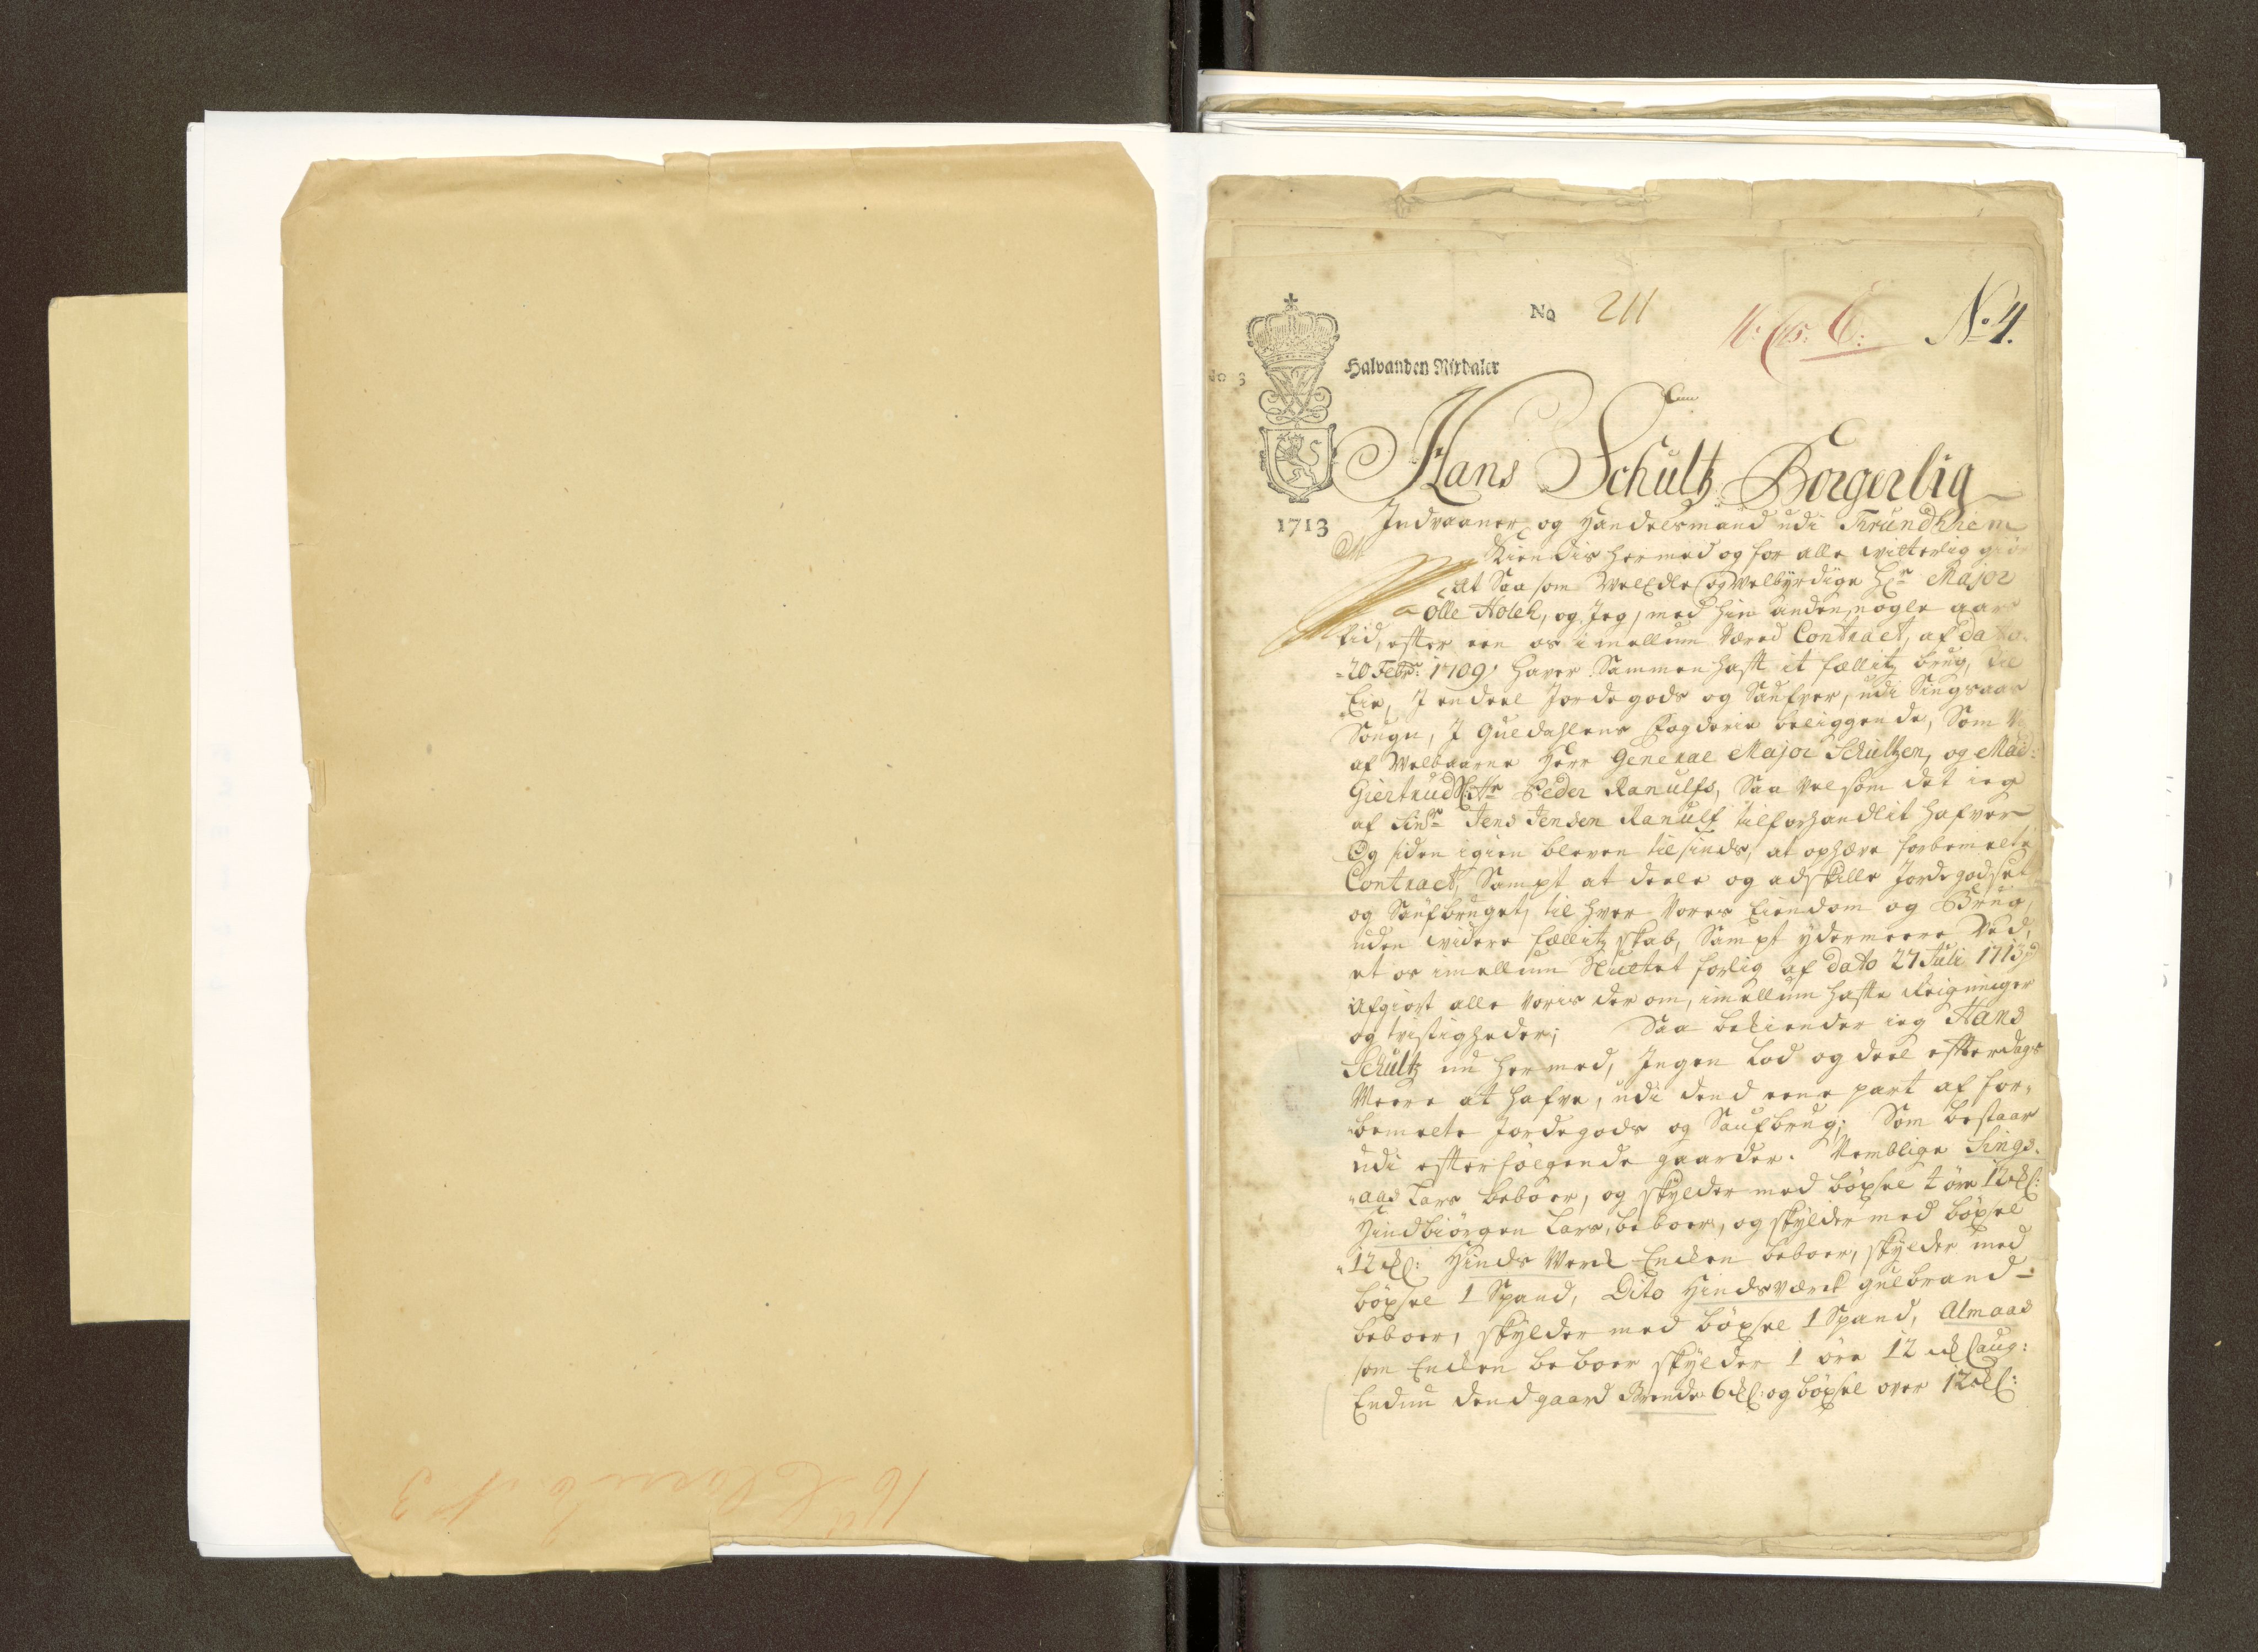 No 211
No 4.
Halvanden Rixdaler
1713
Hans Schultz Borgerlig
Indvaaner og Handelsmand udi Trundhiem
Kiendis hermed og for alle witterlig giör
At Saa som WelEdle og Welbyrdige Hr Major
Olle Holck, og Jeg, med hin anden, nogle aars
tid, efter een os imellum Væred Contract, af dato
20 Febr: 1709, haver Sammen haft it fællitz brug, til
Eie, J endeel Jordegods og Saufver, udi Singsaas
Sougn, J Guldahlens Fogderie beliggende, Som Vi
af Welbaarne Herr General Major Schultzen, og Mad:
Giertrud Sl: Hr Peder Ranulfs, Saa Vel som det ieg
af Sinr Jens Jensen Ranulf tilforhandlit hafver
Og siden igien bleven tilsinds, at ophæve forbemelte
Contract, Sampt at deele og adskille Jordegodset
og Saufbruget, til hver Vores Eiendom og Brug,
uden widere fællitzskab, Sampt ydermeere Ved,
et os imellum Sluttet forlig af dato 27 Juli 1713
Afgiort alle Voris der om, imellum hafte Reigninger
og tvistigheder; Saa bekiender ieg Hans
Schultz nu hermed, Ingen Lod og deel efterdags
Meere at hafve, udi dend eene part af for-
bemelte Jordegods og Saufbrug; Som bestaar
udi efterfölgende gaarder. Nemblige Sings-
aas Lars beboer, og skylder med böxsel 1 öre 12 ʒl:
Hindbiörgen Lars, beboer, og skylder med böxsel
12 ʒl: Hinds Werck Encken beboer, skylder med
böxsel 1 Spand, Dito Hindsværck gulbrand
beboer, skylder med böxsel 1 Spand, Almaas
som Encken beboer skylder 1 öre 12 Saug:
Endnu dend gaard Brende 6 ʒl: og böxsel over 12 ʒl: